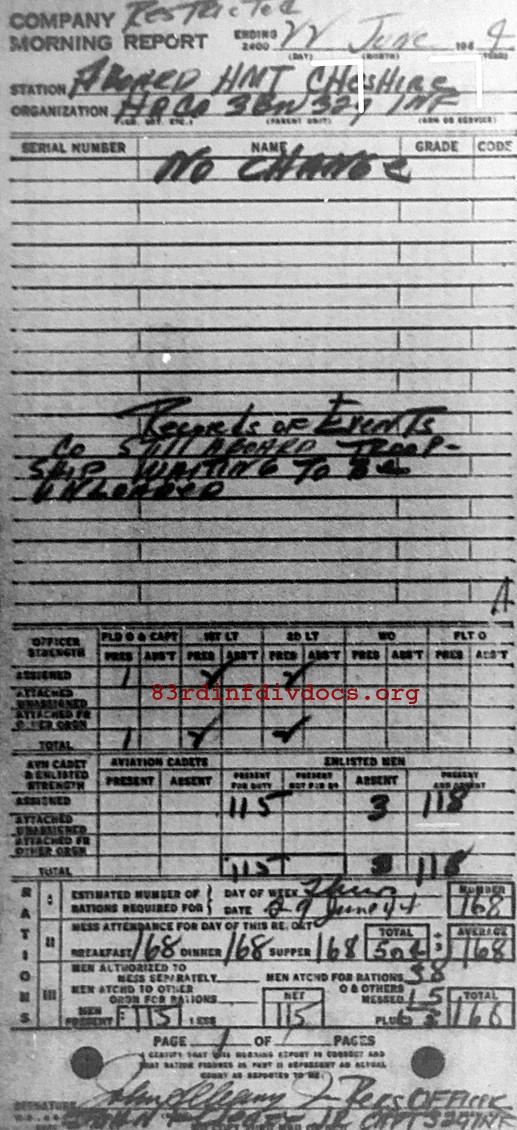 COMPANY RESTRICTED
MORNING REPORT ENDING 2400 22 June 194 4
(DAY) (MONTH) (YEAR)
STATION ABOARD HMT CHESHIRE
ORGANIZATION HQ CO 3BN 329 INF
(CO. DET. ETC.) (PARENT UNIT) (ARM OR SERVICE)
SERIAL NUMBER NAME GRADE CODE
NO CHANGE
Records of Events
CO STILL ABOARD TROOP-
SHIP WAITING TO BE
UNLOADED
OFFICER STRENGTH FLD O & CAPT 1ST LT 2D LT WO FLT O
PRES ABS'T PRES ABS'T PRES ABS'T PRES ABS'T PRES ABS'T
ASSIGNED 1
83rdinfdivdocs.org
ATTACHED UNASSIGNED
ATTACHED FR OTHER ORGN
TOTAL 1
AVN CADET & ENLISTED STRENGTH AVIATION CADETS ENLISTED MEN
PRESENT ABSENT PRESENT FOR DUTY PRESENT NOT FOR DY ABSENT PRESENT AND ABSENT
ASSIGNED 115 3 118
ATTACHED UNASSIGNED
ATTACHED FR OTHER ORGN
TOTAL 115 3 118
RATIONS
I ESTIMATED NUMBER OF RATIONS REQUIRED FOR DAY OF WEEK Thurs NUMBER
DATE June 44 168
II MESS ATTENDANCE FOR DAY OF THIS REPORT TOTAL ÷ 3 AVERAGE
BREAKFAST 168 DINNER 168 SUPPER 168 504 168
III MEN AUTHORIZED TO MESS SEPARATELY MEN ATCHD FOR RATIONS 38
MEN ATCHD TO OTHER ORGN FOR RATIONS NET O & OTHERS MESSED 15 TOTAL
MEN PRESENT 115 LESS 115 PLUS
PAGE 1 OF 1 PAGES
I CERTIFY THAT THIS MORNING REPORT IS CORRECT AND
THAT RATION FIGURES IN PART II REPRESENT AN ACTUAL
COUNT AS REPORTED TO ME
SIGNATURE Jr Pers OFFICER
JOHN JR CAPT 329 INF